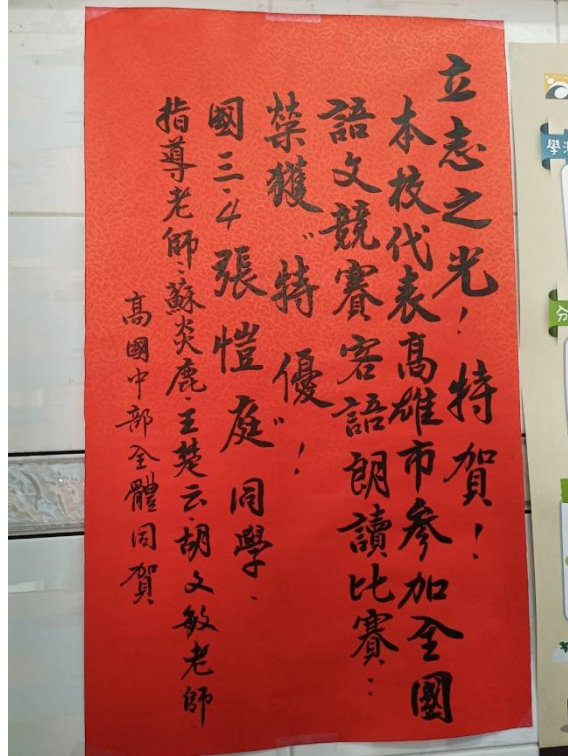 立志之光！特賀！
本校代表高雄市參加全國
語文競賽客語朗讀比賽：
榮獲〝特優〞！
國三.4張愷庭同學、
指導老師：蘇炎鹿.王楚云.胡文敏老師
高國中部全體同賀
學
分